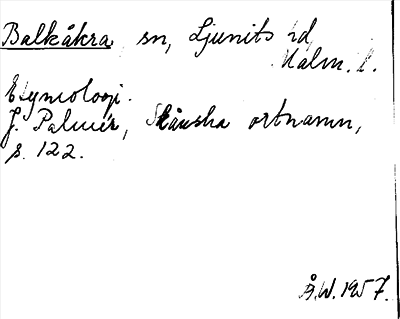 Balkåkra sn, Ljunits hd,
Malm. l.
Etymologi.
J. Palmér, Skånska ortnamn,
s. 122.
Å.W. 1957.